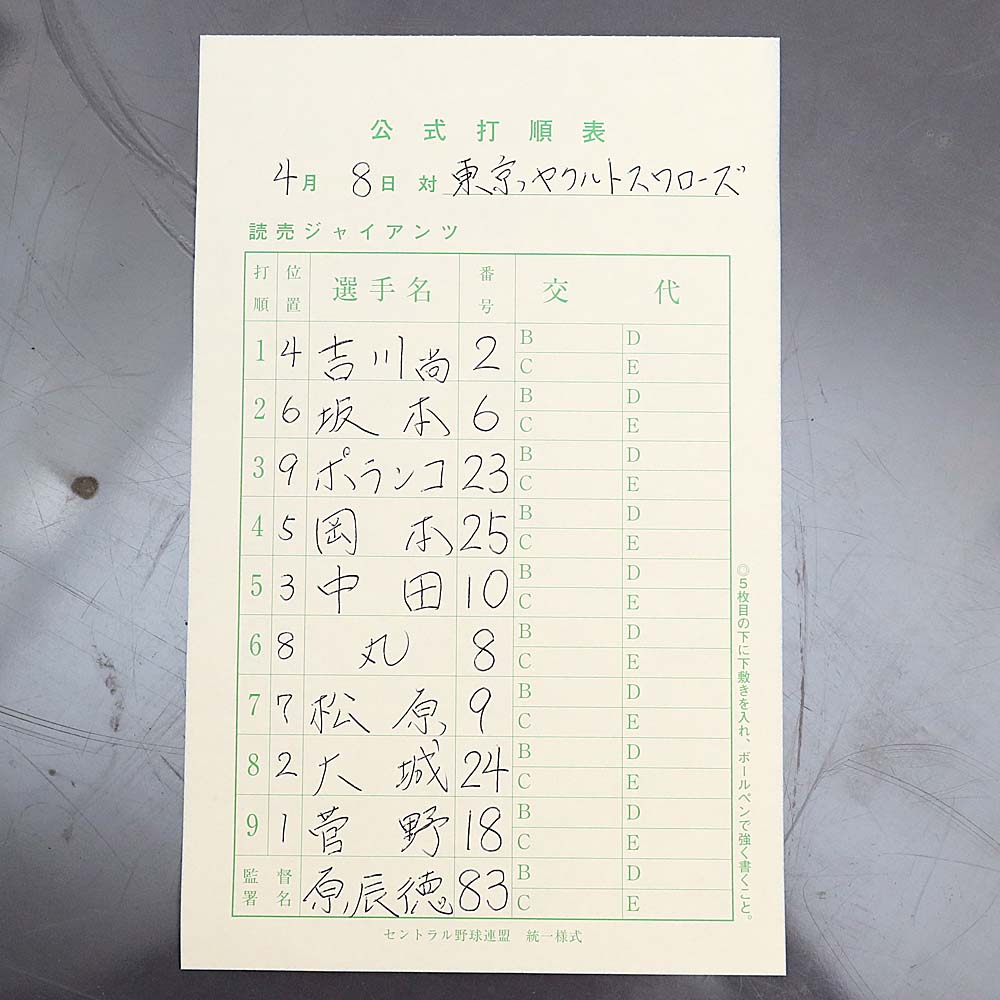 公式打順表
4月 8日 対 東京ヤクルトスワローズ
読売ジャイアンツ
打順 位置 選手名 番号 交代
1 4 吉川尚 2 B D
C E
2 6 坂本 6 B D
C E
3 9 ポランコ 23 B D
C E
4 5 岡本 25 B D
C E
5 3 中田 10 B D
C E
6 8 丸 8 B D
C E
7 7 松原 9 B D
C E
8 2 大城 24 B D
C E
9 1 菅野 18 B D
C E
監督署名 原辰徳 83 B D
C E
◎5枚目の下に下敷きを入れ、ボールペンで強く書くこと。
セントラル野球連盟 統一様式